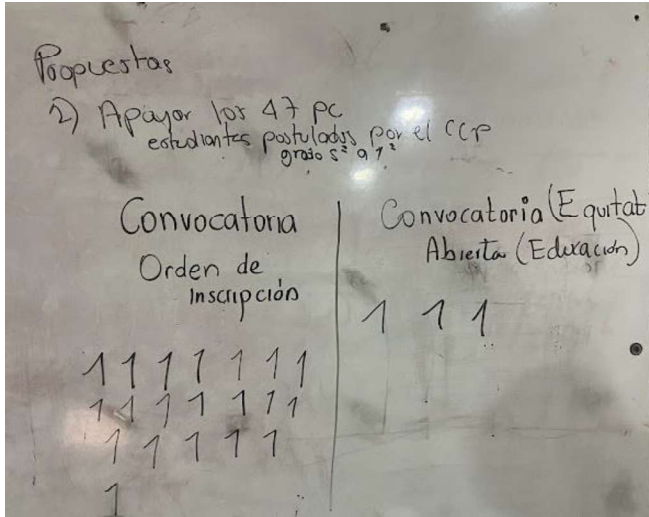 Propuestas
2) Apoyar los 47 PC
estudiantes postulados por el CCP
grado 5° a 7°
Convocatoria
Orden de
Inscripción
1 1 1 1 1 1 1
1 1 1 1 1 1 1
1 1 1 1 1
1
Convocatoria (Equitat
Abierta (Educación)
1 1 1